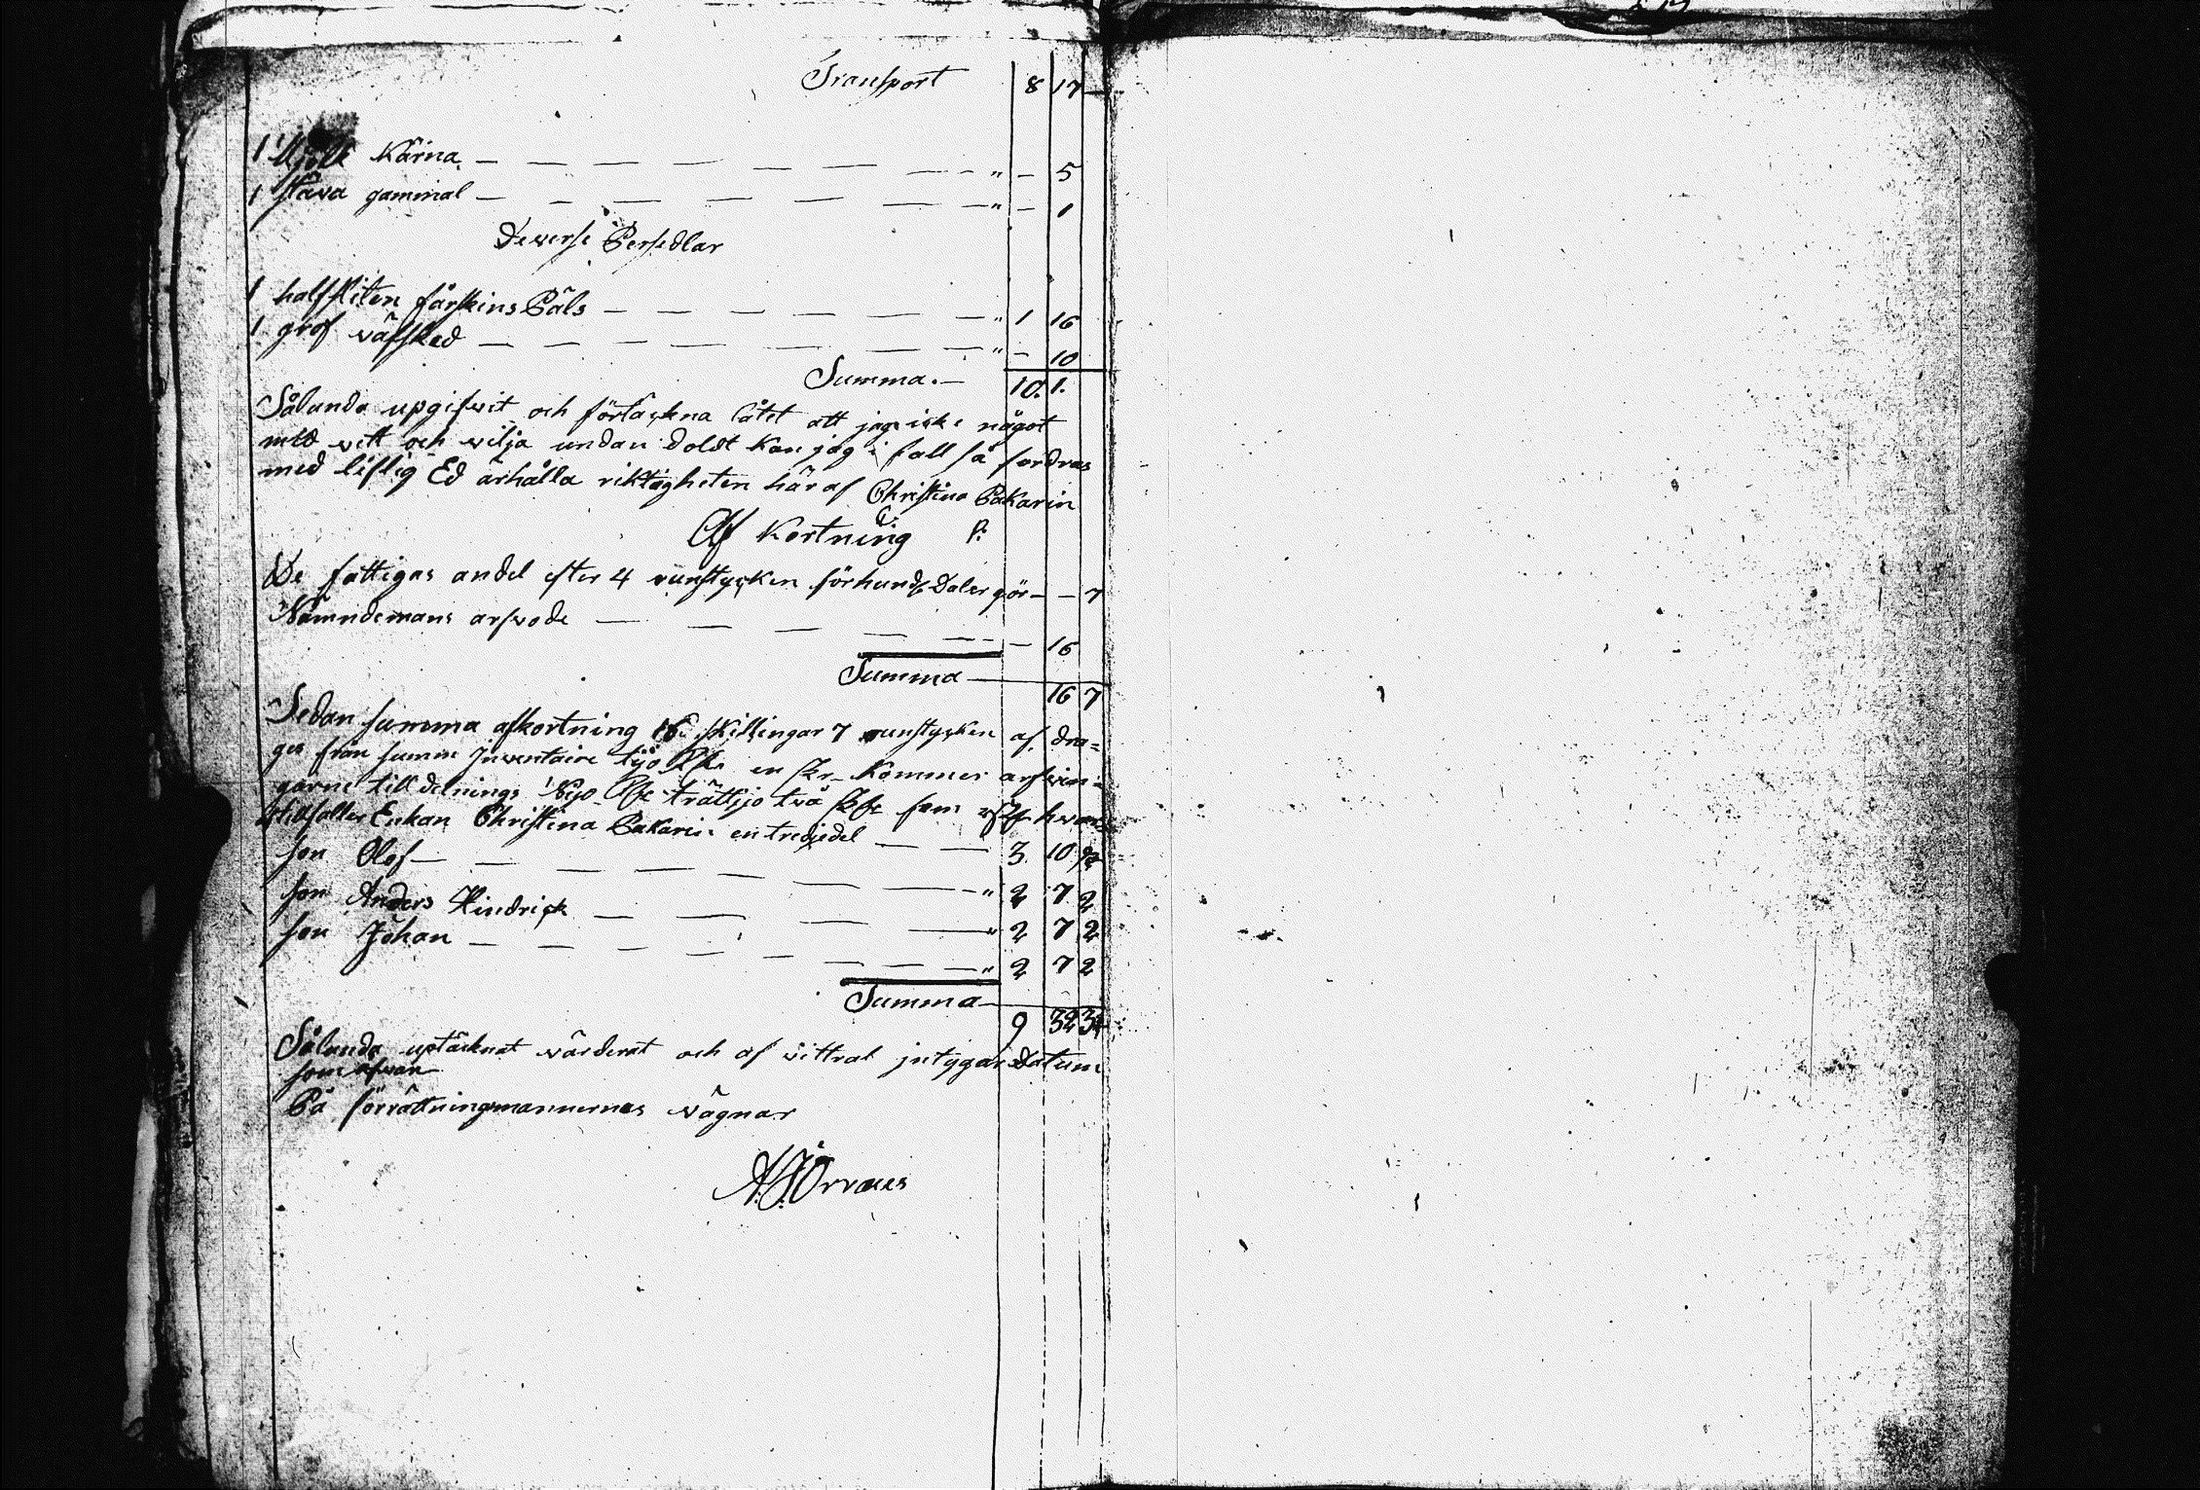 Transport 8 17 —
1 Mjölk Kärna — — — — — — — " — 5
1 stäva gammal — — — — — — — " — 1
Deverse Persedlar
1 halfsliten fårskins Päls — — — — — — " 1 16
1 grof väfsked — — — — — — — " — 10
Summa. — 10. 1.
Sålunda upgifvit och förtäckna låtet att jag icke något
med vett och vilja undan doldt kan jag i fall så fordras
med liflig Ed ärhålla riktigheten häraf Christina Pakarin
Af Kortning
De fattigas andel efter 4 runstycken för hund. Daler gör — — 7
Nämndemans arfvode — — — — — — 16
Summa — 16 7
Sedan summa afkortning 16 skillingar 7 runstycken af dra=
ges från summ Inventairie tijo en Kommer arfvin=
garne till delnings Nijo trättijo två fem hvar
tillfaller Enkan Christina Pakarin en tredjedel — — 3 10
son Olof — — — — — — — " 2 7 2
son Anders Hindrick — — — — " 2 7 2
son Johan — — — — — — — " 2 7 2
Summa — 9 32
Sålunda uptäcknat värderat och af vittrat intygar Datum
som ofvan
På förrättningsmannernas vägnar